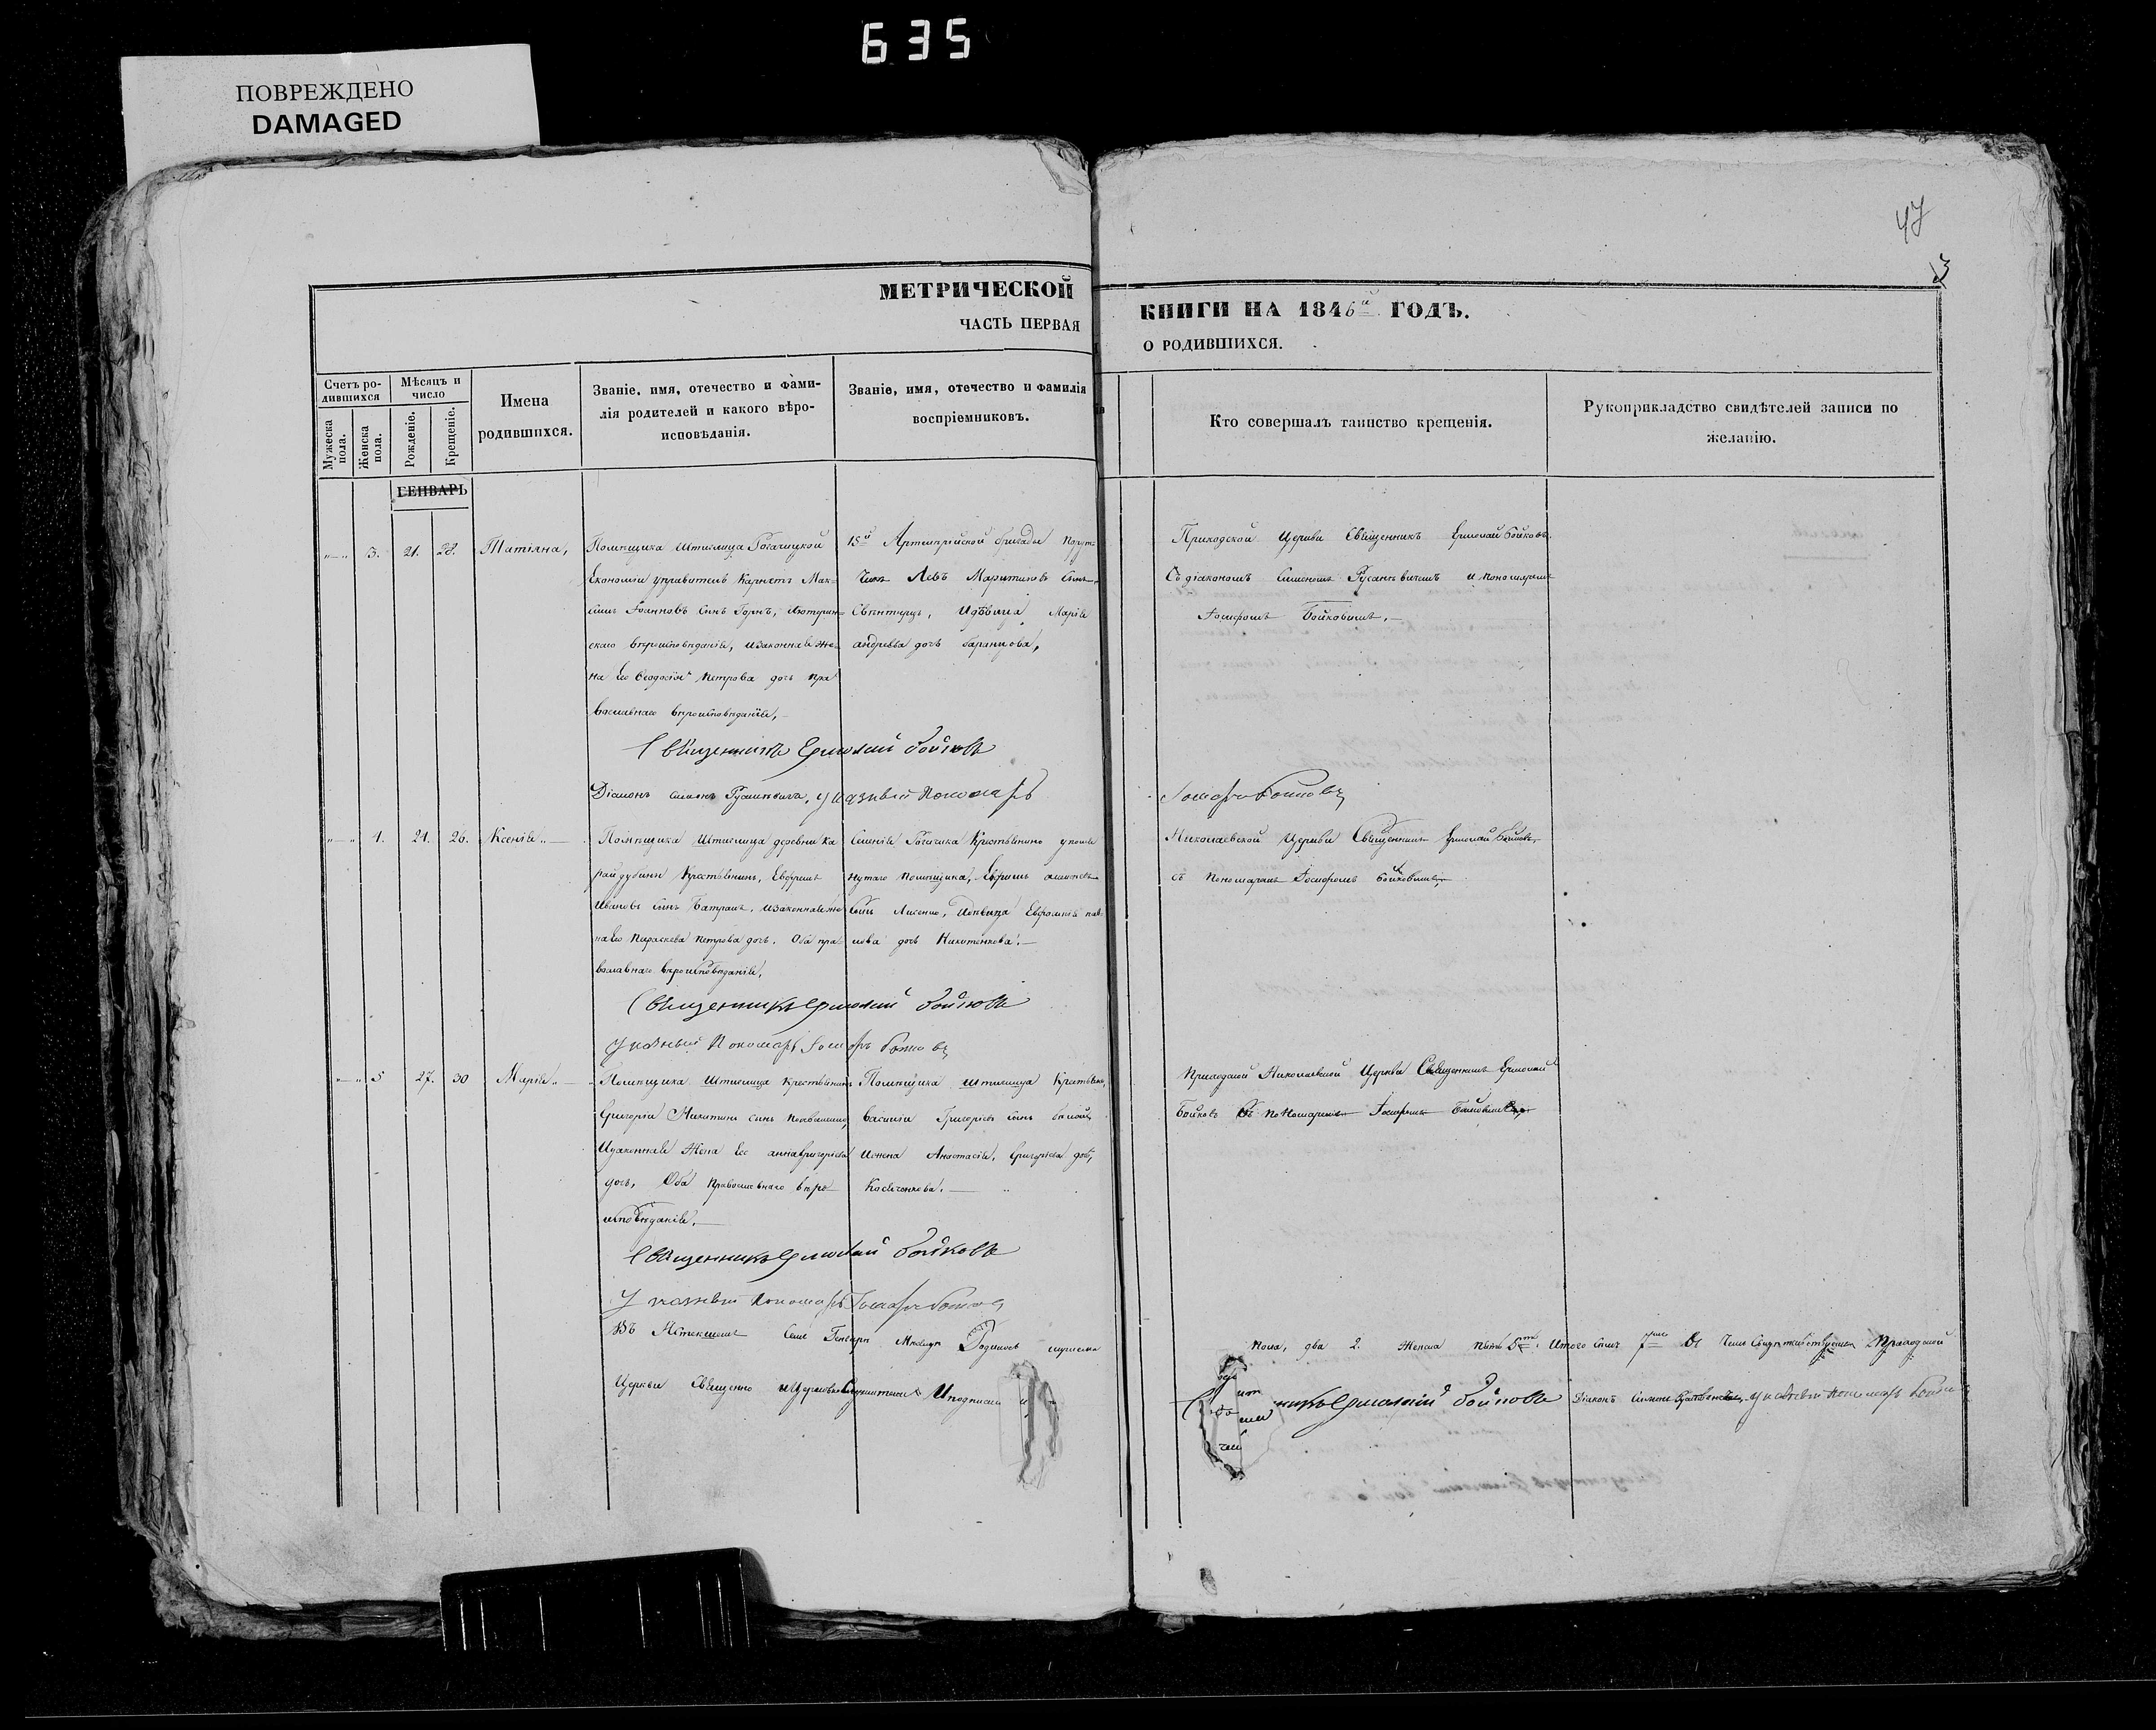 635
ПОВРЕЖДЕНО
DAMAGED
47
3
МЕТРИЧЕСКОЙ КНИГИ НА 1846й ГОДЪ.
ЧАСТЬ ПЕРВАЯ О РОДИВШИХСЯ.
Счетъ родившихся
Мужеска пола.
Женска пола.
Мѣсяцъ и число
Рожденіе.
Крещеніе.
Имена родившихся.
Званіе, имя, отечество и фамилія родителей и какого вѣроисповѣданія.
Званіе, имя, отечество и фамилія воспріемниковъ.
Кто совершалъ таинство крещенія.
Рукоприкладство свидѣтелей записи по желанію.
ГЕНВАРЬ
3. 21. 28. Татіяна,
Помѣщика Штиглица Рогачицкой
Економіи управитель Карнетъ Мак-
симъ Іоанновъ сынъ Горнъ, Лютеран-
скаго вѣроисповѣданія, и законная же-
на его Ѳеодосія Петрова дочь пра
вославнаго вѣроисповѣданія,
15й Артилерійской бригады Порут-
чикъ Левъ Мартиновъ сынъ
Марія
андреева дочь баранцова,
Приходской Церкви Священникъ Ермолай Бойковъ
Съ діакономъ Симеономъ и пономаремъ
Іосифомъ Бойковымъ.
Священникъ Ермолай бойковъ
Діаконъ указный Пономарь
Іосифъ Бойковъ
4. 21. 26. Ксенія
Помѣщика Штиглица деревни Ка
райдубины Крестьянинъ, Евфремъ
Ивановъ сынъ и законная же
на его Параскева Петрова дочь. Оба пра
вославнаго вѣроисповѣданія,
Селенія Рогачика Крестьянинъ упомя
нутаго помѣщика, Ефремъ
сынъ Лисенко, Дѣвица Евфимія пав-
лова дочь Никитенкова.
Николаевской Церкви Священникъ Ермолай Бойковъ
съ Пономаремъ Іосифомъ Бойковымъ,
Священникъ Ермолай бойковъ
Указный Пономарь Іосифъ Бойковъ
5 27. 30 Марія
Помѣщика Штиглица Крестьянинъ
Григорій Никитинъ сынъ
И законная Жена его анна Григоріева
дочь, Оба Православнаго вѣро
исповѣданія.
Помѣщика Штиглица Крестьянинъ,
Василій Григорьевъ сынъ
И жена Анастасія, Григорьева дочь,
Косяченкова.
Приходской Николаевской Церкви Священникъ Ермолай
Бойковъ съ пономаремъ Іосифомъ Бойковымъ
Священникъ Ермолай бойковъ
Указный Пономарь Іосифъ Бойковъ
Въ Истекшемъ Семъ Генварѣ Мѣсяцѣ Родилось мужеска пола, два 2. Женска пять 5ть. Итого семь 7мь Въ Чемъ Свидѣтельствуемъ Приходской
Церкви Священно и Церковно Служители И подписали
никъ Ермолай бойковъ Діаконъ Симеонъ Указный Пономарь